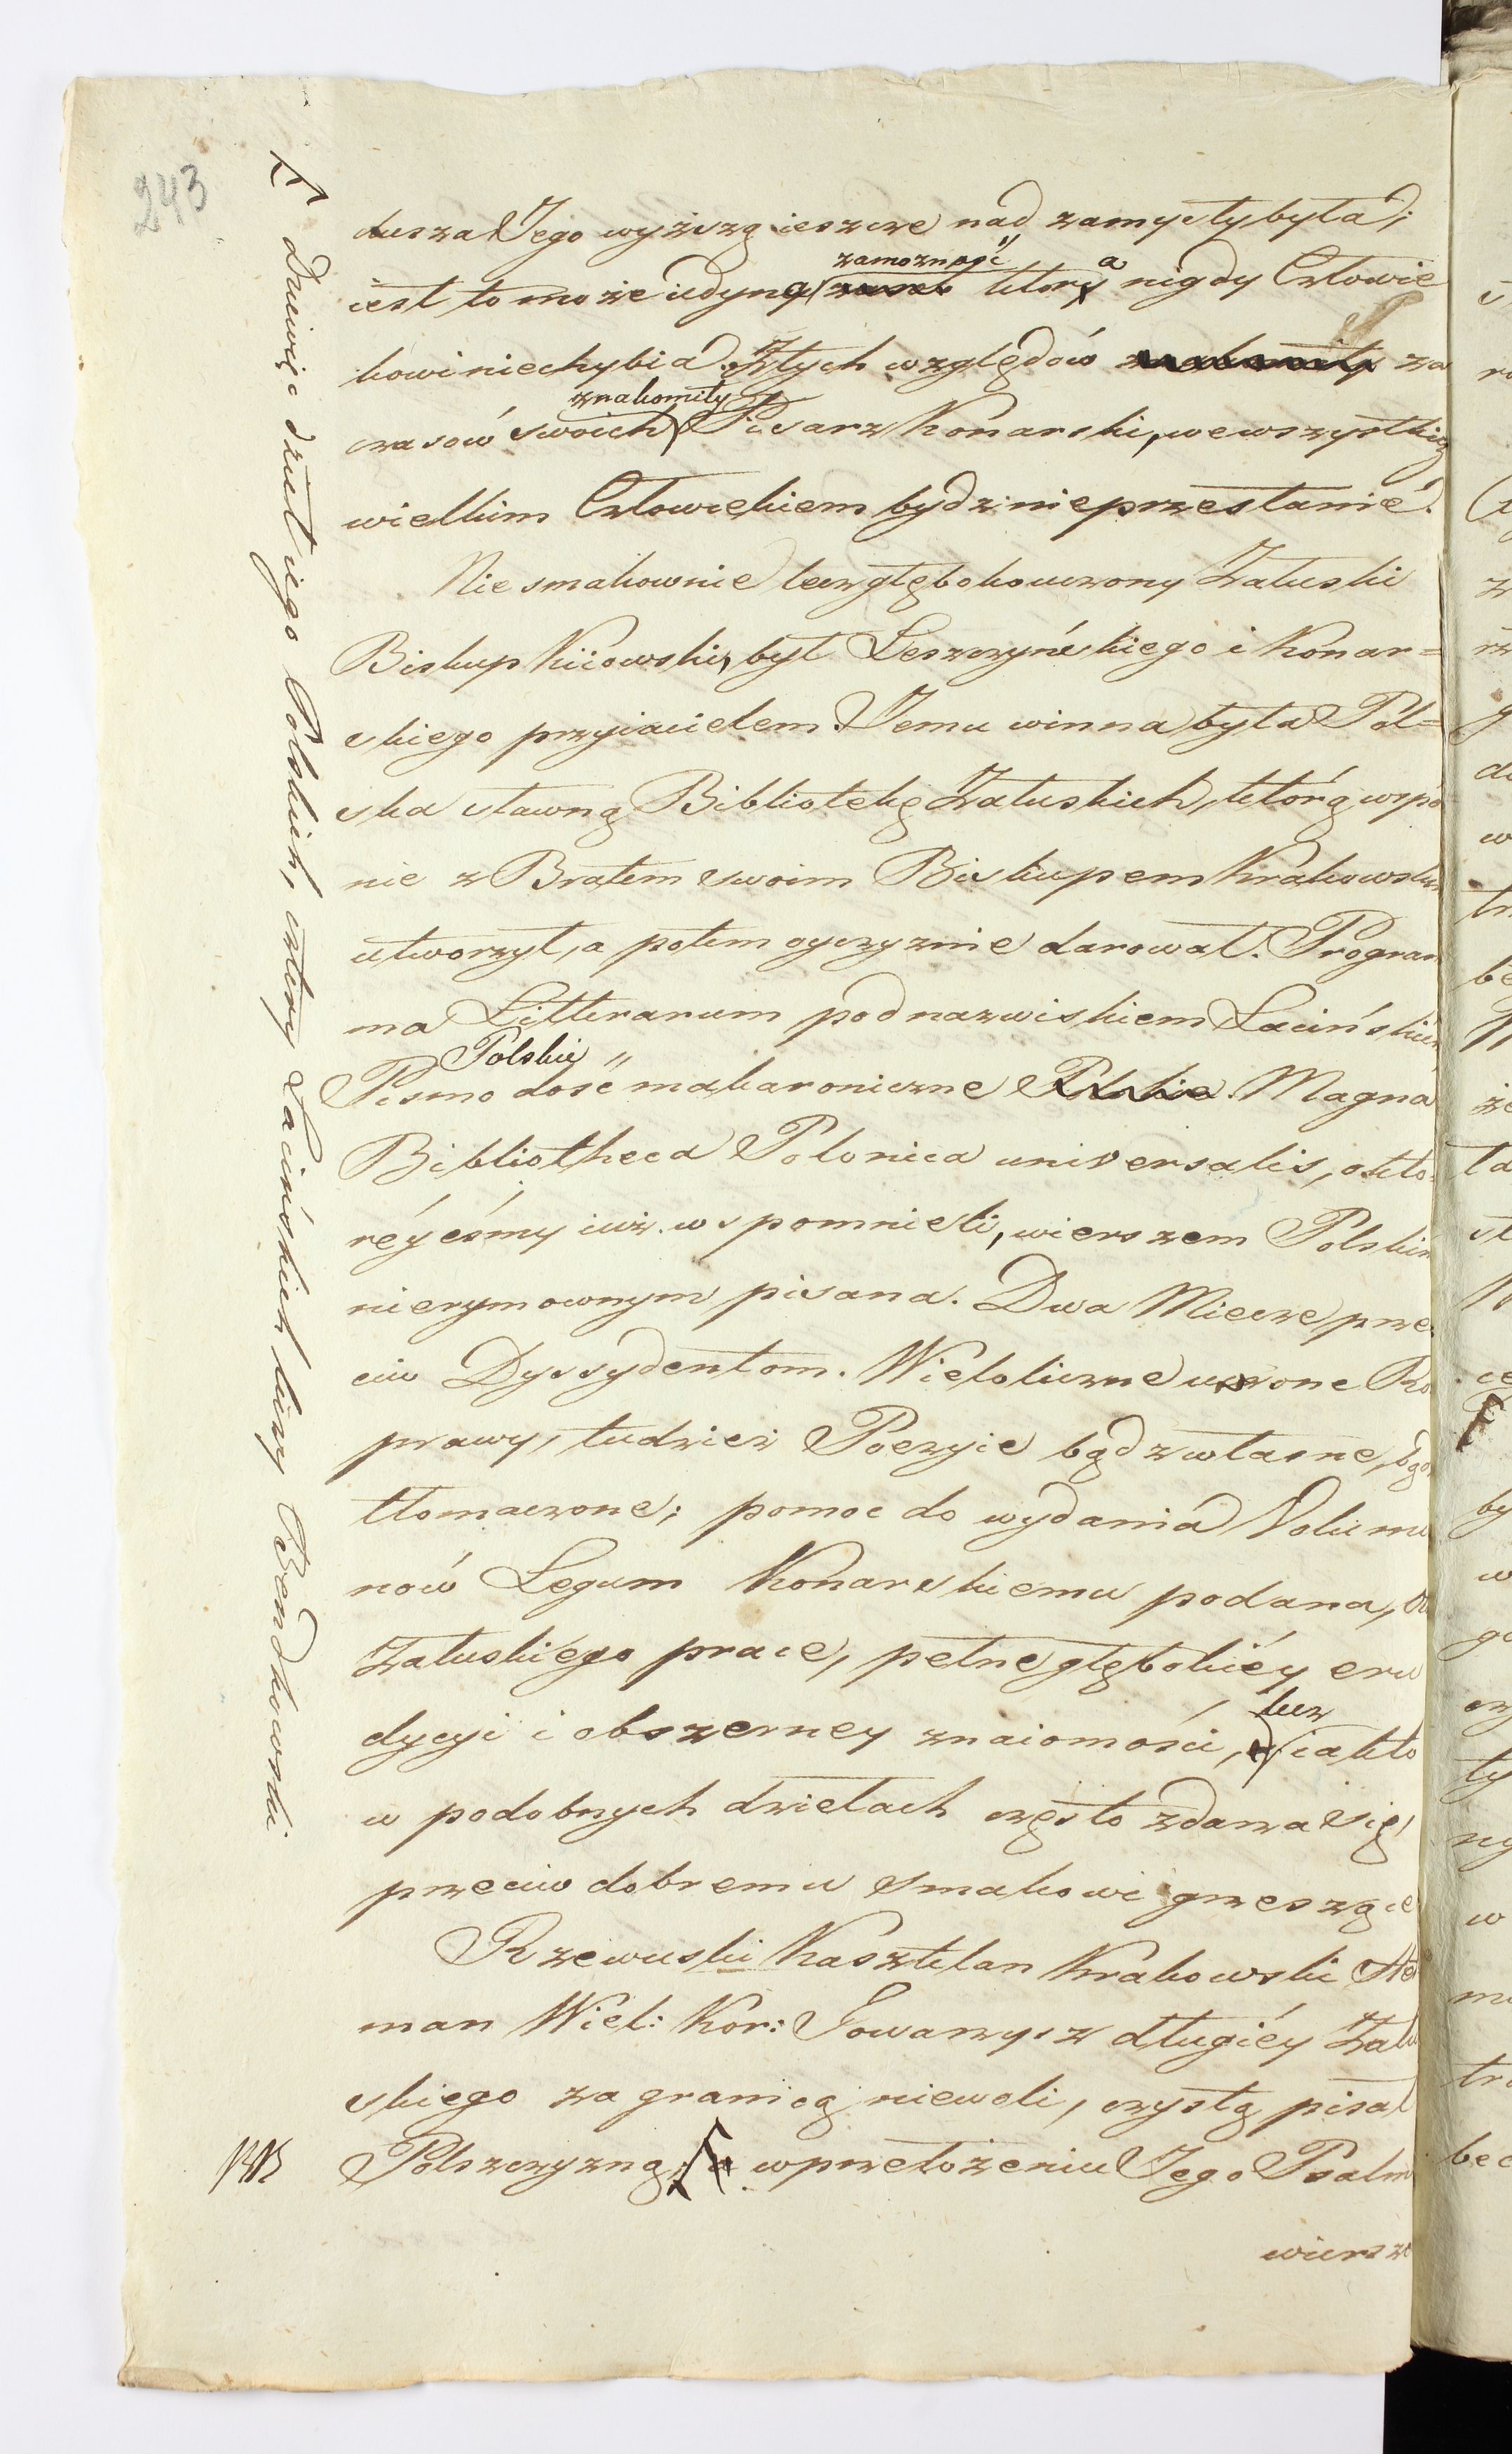 243
dusza Jego wyższą ieszcze nad zamysły była;
zamozność a
iest to może iedyna który nigdy Człowie
kowi niechybia. Z tych względów za
znakomity
czasów swoich Pisarz Konarski, we wszystkich
wielkim Człowiekiem bydź nieprzestanie.
Nie smakownie lecz głęboko uczony Załuski
Biskup Kiiowski, był Leszczyńskiego i Konar=
skiego przyiacielem. Jemu winna była Pol=
ska sławną Bibliotekę Załuskich, którą wspo
nie z Bratem swoim Biskupem Krakowskim
utworzył, a potem oyczyznie darował. Program
ma Litterarum pod nazwiskiem Łacińskiem
Polskie
Pismo dość makaroniczne Polskie. Magna
Bibliotheca Polonica universalis, o któ=
réy eśmy iuż wspomnieli, wierszem Polskim
nierymownym pisana. Dwa Miecze prze
ciw Dyssydentom. Wieloliczne uczone Ro
prawy, tudzież Poezyie bądź własne, bądź
tłomaczone; pomoc do wydania Volumi
nów Legum Konarskiemu podana, są
Załuskiego prace, pełne głębokiéy eru
dycyi i obszerney znaiomości,
lecz
iakto
w podobnych dziełach często zdarza się,
przeciw dobremu smakowi grzeszące
Rzewuski Kasztelan Krakowski Het
man Wiel: Kor: Towarzysz długiéy Zału
skiego za granicą niewoli, czystą pisał
NB Polszczyzną, a w przełożeniu Jego Psalm
wiersze
Dziewięć dzieł iego Polskich, cztery Łacińskich liczy Bendkowski